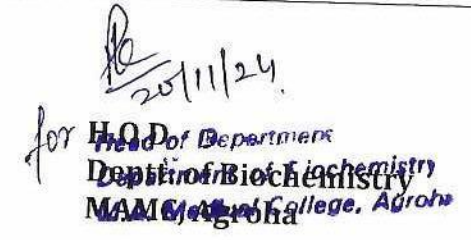 20/11/24
for H.O.D.
Head of Department
Deptt. of Biochemistry
Department of Biochemistry
MAMC, Agroha
Medical College, Agroha